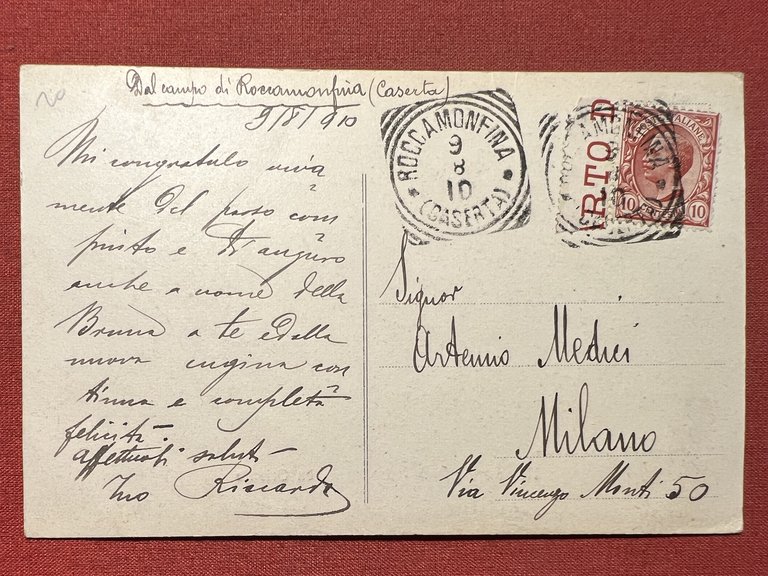 20
Dal campo di Roccamonfina (Caserta)
9/8/910
Mi congratulo viva
mente del passo com
piuto e ti auguro
anche a nome della
Bruna a te e della
nuova cugina con
tinua e completa
felicità.
affettuosi saluti
Tuo Riccardo
ROCCAMONFINA
9
8
10
(CASERTA)
RTO D
ITALIANE
10
10
Signor
Artemio Medici
Milano
Via Vincenzo Monti 50